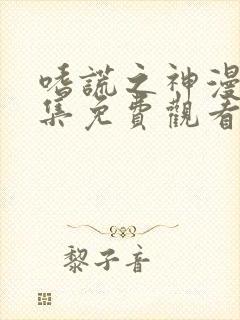 嗜謊之神漫
集免費觀看
黎子音